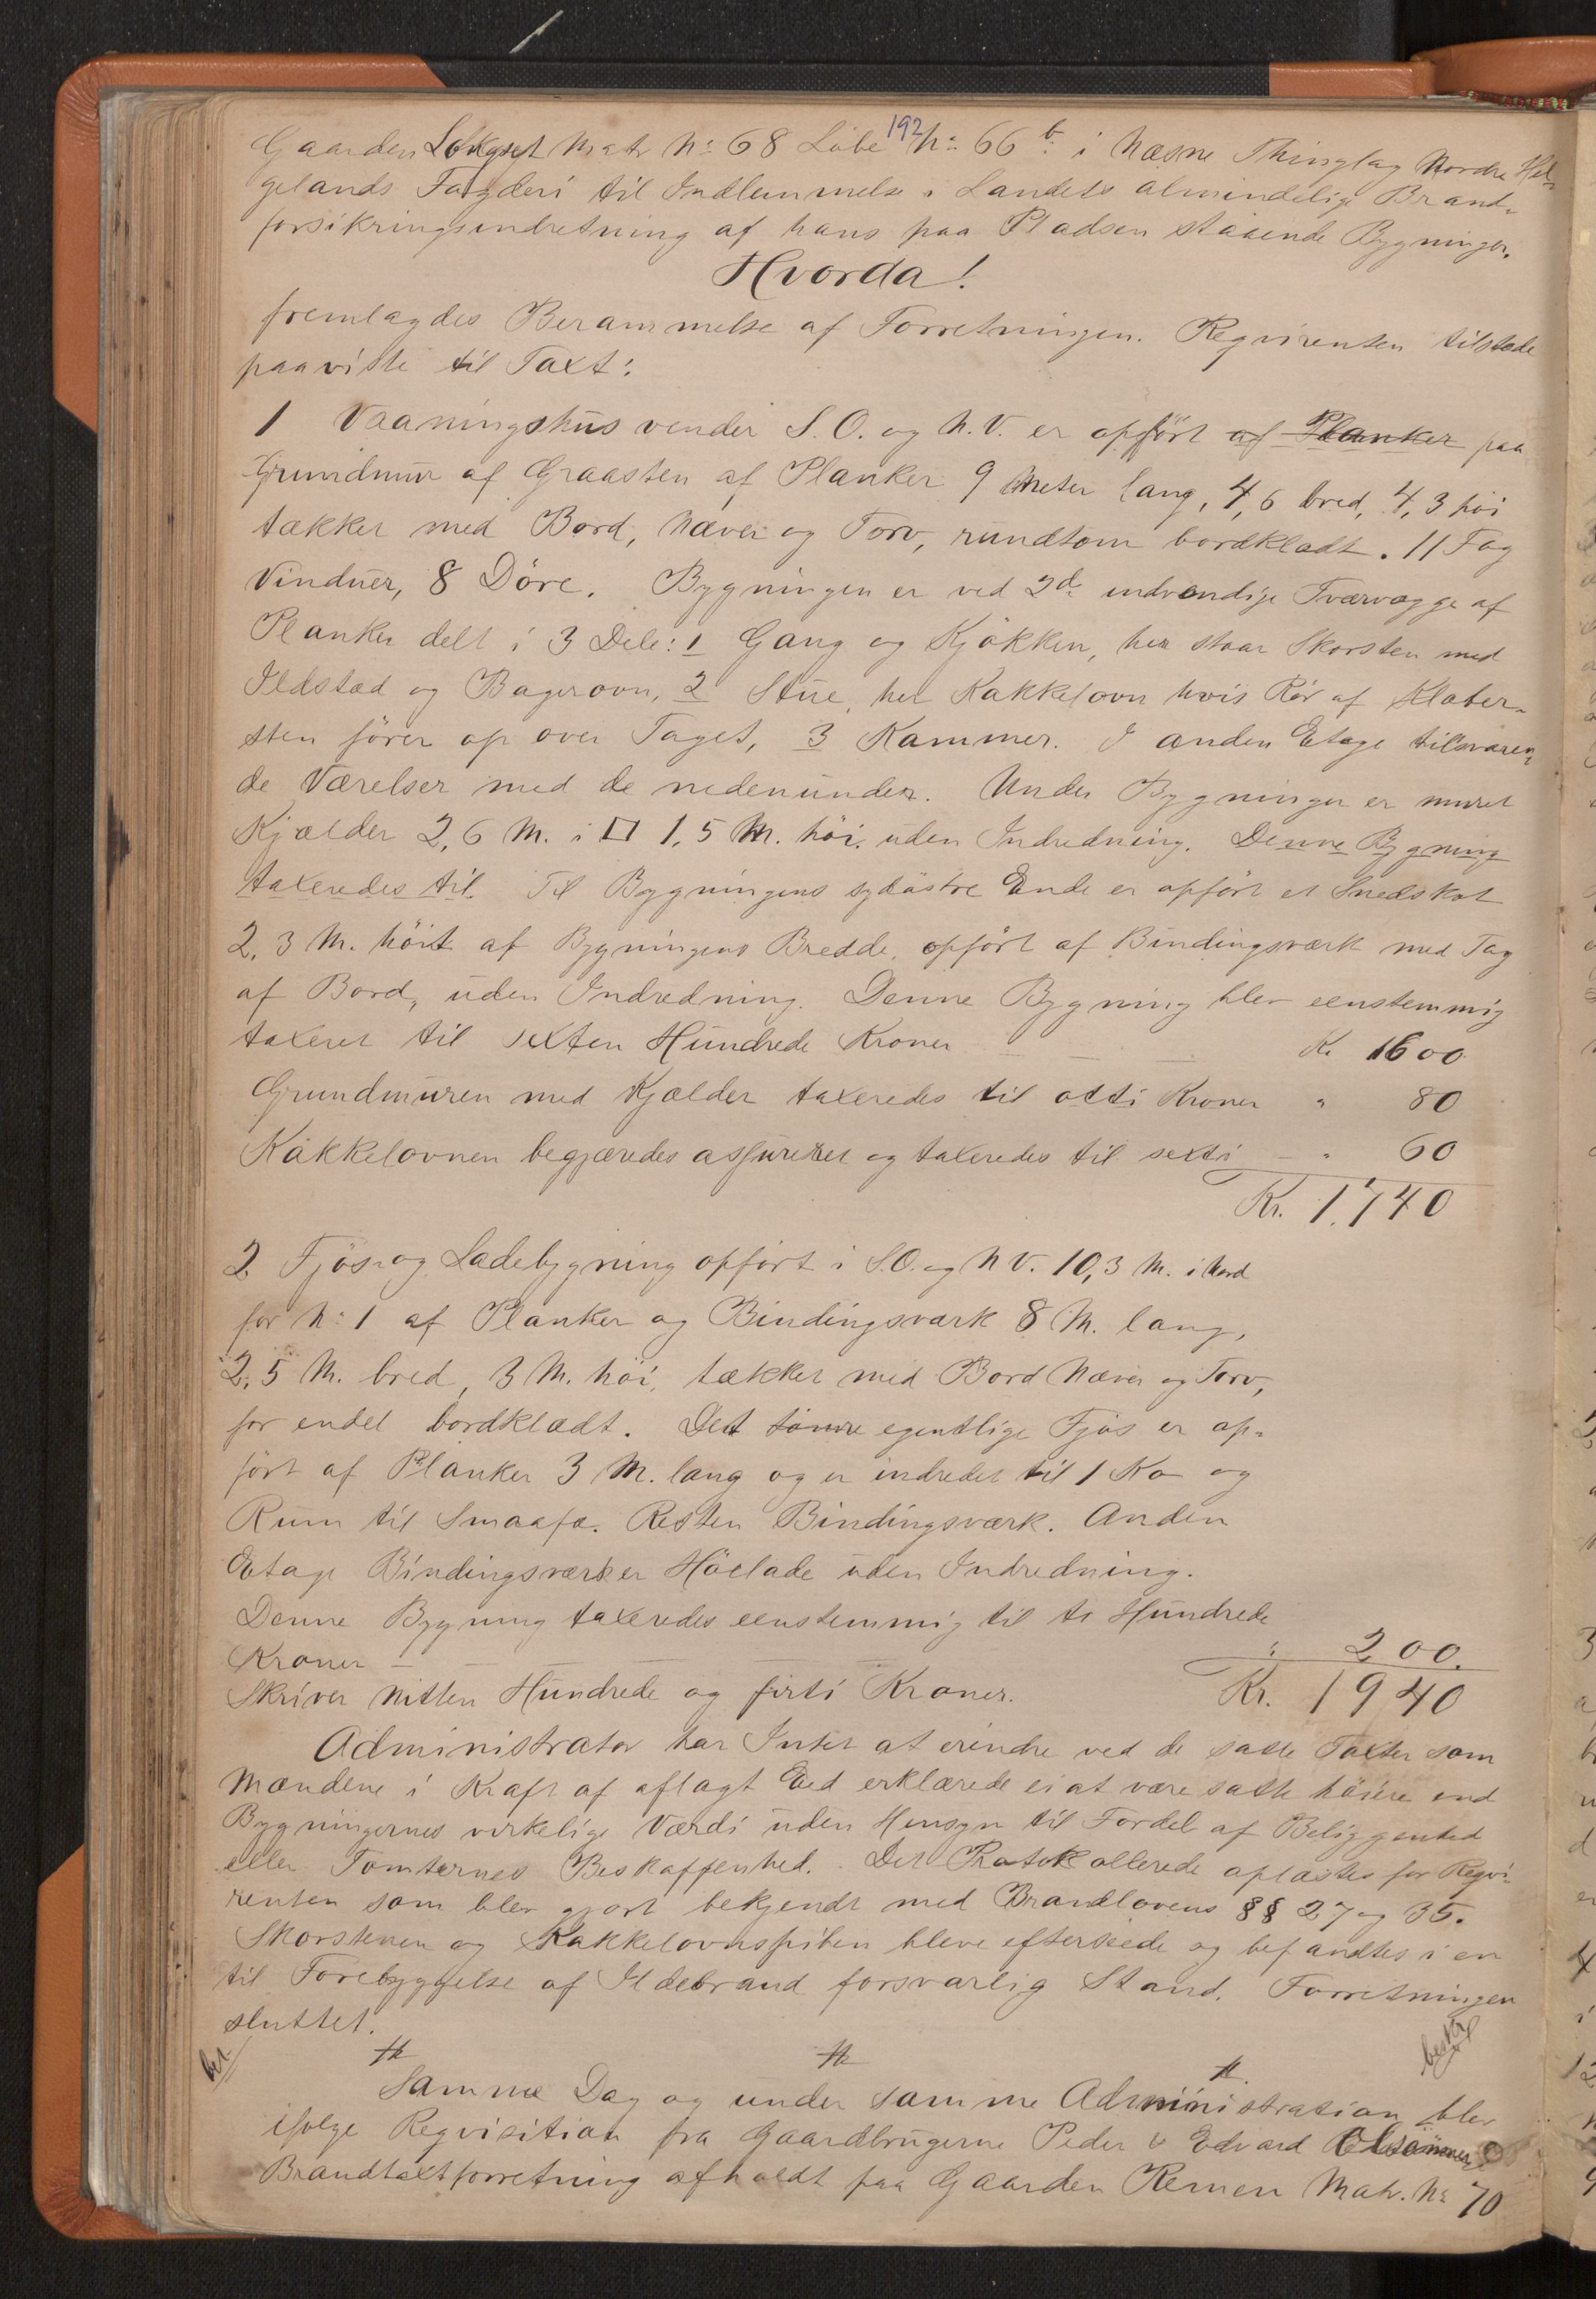 192
Gaarden Løkgset Matr N: 68 Løbe N: 66 b. i Næsne Thinglag Nordre Hel-
gelands Fogderi til Indlemmelse i Landets almindelige Brand-
forsikringsindretning af hans paa Pladsen staaende Bygninger.
Hvorda!
fremlagdes Berammelse af Forretningen. Reqvirenten tilstede
paaviste til Taxt:
1 Vaaningshus vender S.O. og N.V. er opført af Planker paa
Grundmur af Graasten af Planker 9 Meter lang, 4,6 bred, 4,3 høi
tækket med Bord, Næver og Torv, rundtom bordklædt. 11 Fag
Vinduer, 8 Døre. Bygningen er ved 2de indvendige Tværvægge af
Planker delt i 3 Dele: 1 Gang og Kjøkken, her staar Skorsten med
Ildstæd og Bagerovn, 2 Stue, her Kakkelovn hvis Rør af Kleber-
sten fører op over Taget, 3 Kammer. I anden Etage tilsvaren-
de Værelser med de nedenunder. Under Bygningen er muret
Kjælder 2,6 M. i □ 1,5 M. høi, uden Indredning. Denne Bygning
taxeredes til. Til Bygningens sydøstre Ende er opført et Snedskot
2,3 M. høit af Bygningens Bredde, opført af Bindingsværk med Tag
af Bord, uden Indredning. Denne Bygning blev eenstemmig
taxeret til sexten Hundrede Kroner — — — Kr 1600
Grundmuren med Kjælder taxeredes til otti Kroner " 80
Kakkelovnen begjæredes assureret og taxeredes til sexti — " 60
Kr. 1,740
2 Fjøs og Ladebygning opført i S.O. og N.V. 10,3 M. i Nord
for N: 1 af Planker og Bindingsværk 8 M. lang,
2,5 M. bred, 3 M. høi, tækket med Bord Næver og Torv,
for endel bordklædt. Det egentlige Fjøs er op-
ført af Planker 3 M. lang og er indredet til 1 Ko og
Rum til Smaafæ. Resten Bindingsværk. Anden
Etage Bindingsværk er Hølade uden Indredning.
Denne Bygning taxeredes eenstemmig til to Hundrede
Kroner — — — " 200.
Skriver nitten Hundrede og firti Kroner. Kr. 1940
Administrator har Intet at erindre ved de satte Taxter som
Mændene i Kraft af aflagt Eed erklærede ei at være satte høiere end
Bygningernes virkelige Værdi uden Hensyn til Fordel af Beliggenhed
eller Tomternes Beskaffenhed. Det Protokollerede oplæstes for Reqvi-
renten som blev gjort bekjendt med Brandlovens §§ 27 og 35.
Skorstenen og Kakkelovnspiben bleve efterseede og befandtes i en
til Forebyggelse af Ildebrand forsvarlig Stand. Forretningen
sluttet.
Samme Dag og under samme Administration blev
ifølge Reqvisition fra Gaardbrugerne Peder & Edvard Olsønner
Brandtaxtforretning afholdt paa Gaarden Remen Matr. N: 70